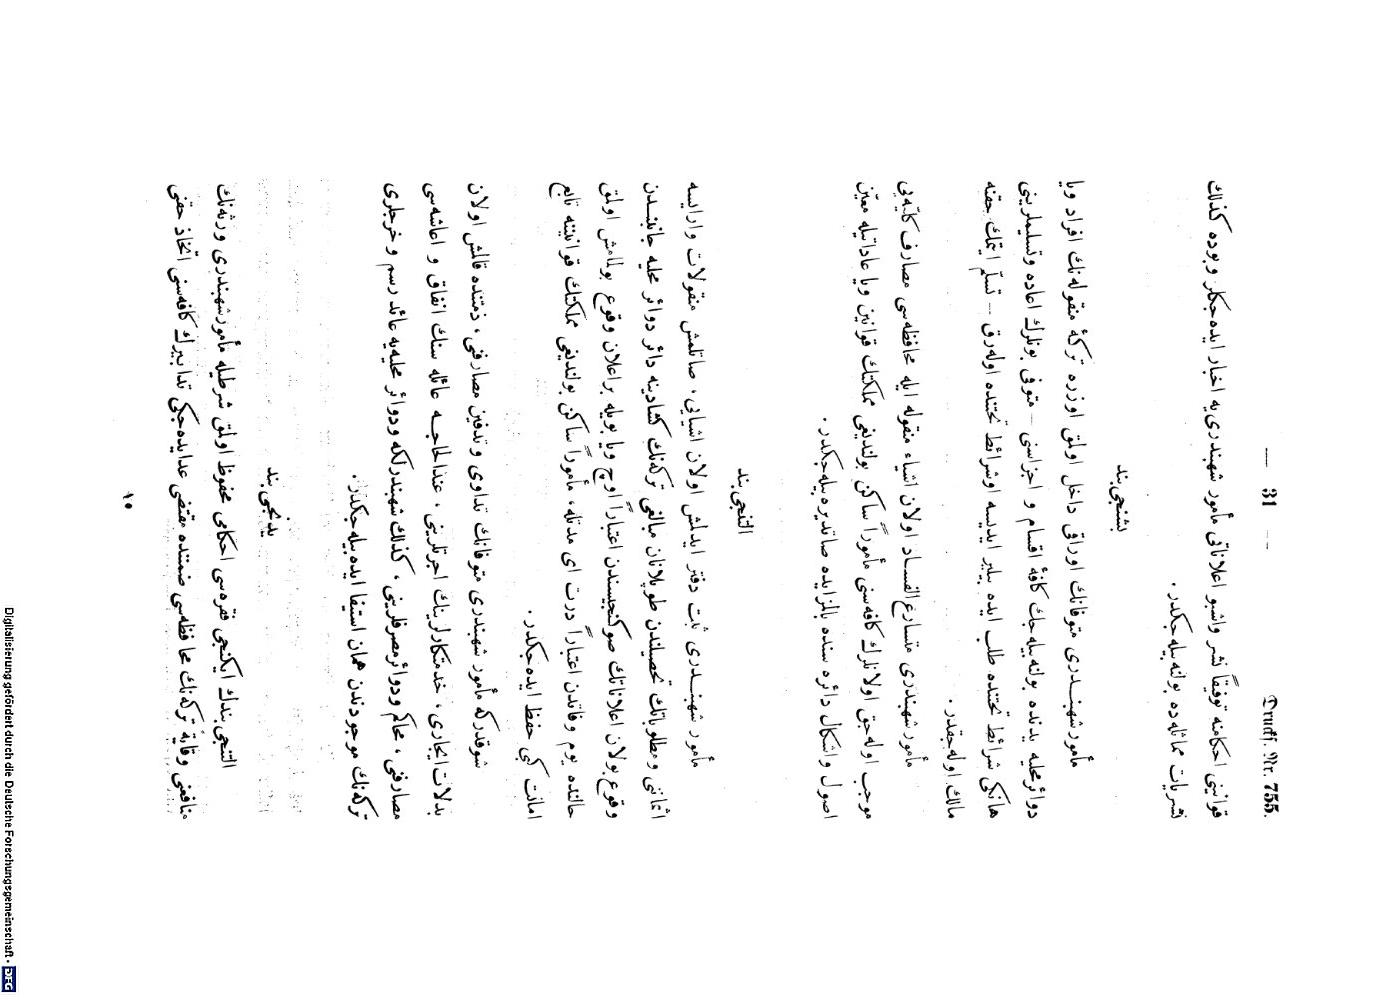 — 31 —
Drucks. Nr. 755.
قوانینی احکامنه توفیقاً نشر واشبو اعلاناتی مأمور شهبندری‌یه اخبار ایده‌جکلر وبوده کذلك
نشریات مماثله‌ده بولنه بیله‌جکدر .
بشنجی بند
مأمور شهبندری متوفانك اوراقی داخل اولمق اوزره ترکهٔ منقوله‌نك افراد ویا
دوائر محلیه یدنده بولنه بیله‌جك کافهٔ اقسام و اجزاسنی — متوفی بونلرك اعاده وتسلیملرینی
هانکی شرائط تحتنده طلب ایده بیلیر ایدیسه اوشرائط تحتنده اوله‌رق — تسلم ایتمك حقنه
مالك اوله‌جقدر .
مأمور شهبندری متسارع الفساد اولان اشیاء منقوله ایله محافظه‌سی مصارف کلیه‌یی
موجب اوله‌جق اولانلرك کافه‌سنی مأموراً ساکن بولندیغی مملکتك قوانین ویا عاداتیله معین
اصول واشکال دائره سنده بالمزایده صاتدیره بیله‌جکدر .
التنجی بند
مأمور شهبندری ثبت دفتر ایدلمش اولان اشیایی ، صاتلمش منقولات وارایسه
اثماننی ومطلوباتك تحصیلندن طوپلانان مبالغی ترکه‌نك کشادینه دائر دوائر محلیه جانبندن
وقوع بولان اعلاناتك صوکنجیسندن اعتباراً اوچ ویا بویله براعلان وقوع بولمامش اولمق
حالنده یوم وفاتدن اعتباراً درت ای مدتله ، مأموراً ساکن بولندیغی مملکتك قوانیننه تابع
امانت کبی حفظ ایده‌جکدر .
شوقدرکه مأمور شهبندری متوفانك تداوی و تدفین مصارفنی ، ذمتنده قالمش اولان
بدلات ایجاری ، خدمتکارلرینك اجرتلرینی ، عندالحاجه عائله سنك انفاق و اعاشه‌سی
مصارفنی ، محاکم ودوائر مصرفلرینی ، کذلك شهبندرلکه ودوائر محلیه‌یه عائد رسم و خرجلری
ترکه‌نك موجودندن همان استیفا ایده بیله‌جکدر .
یدنجی بند
التنجی بندك ایکنجی فقره‌سی احکامی محفوظ اولمق شرطیله مأمور شهبندری ورثه‌نك
منافعنی وقایةً ترکه‌نك محافظه‌سی ضمننده مقتضی عدایده‌جکی تدابیرك کافه‌سنی اتخاذ حقنی
١٠
Digitalisierung gefördert durch die Deutsche Forschungsgemeinschaft - DFG